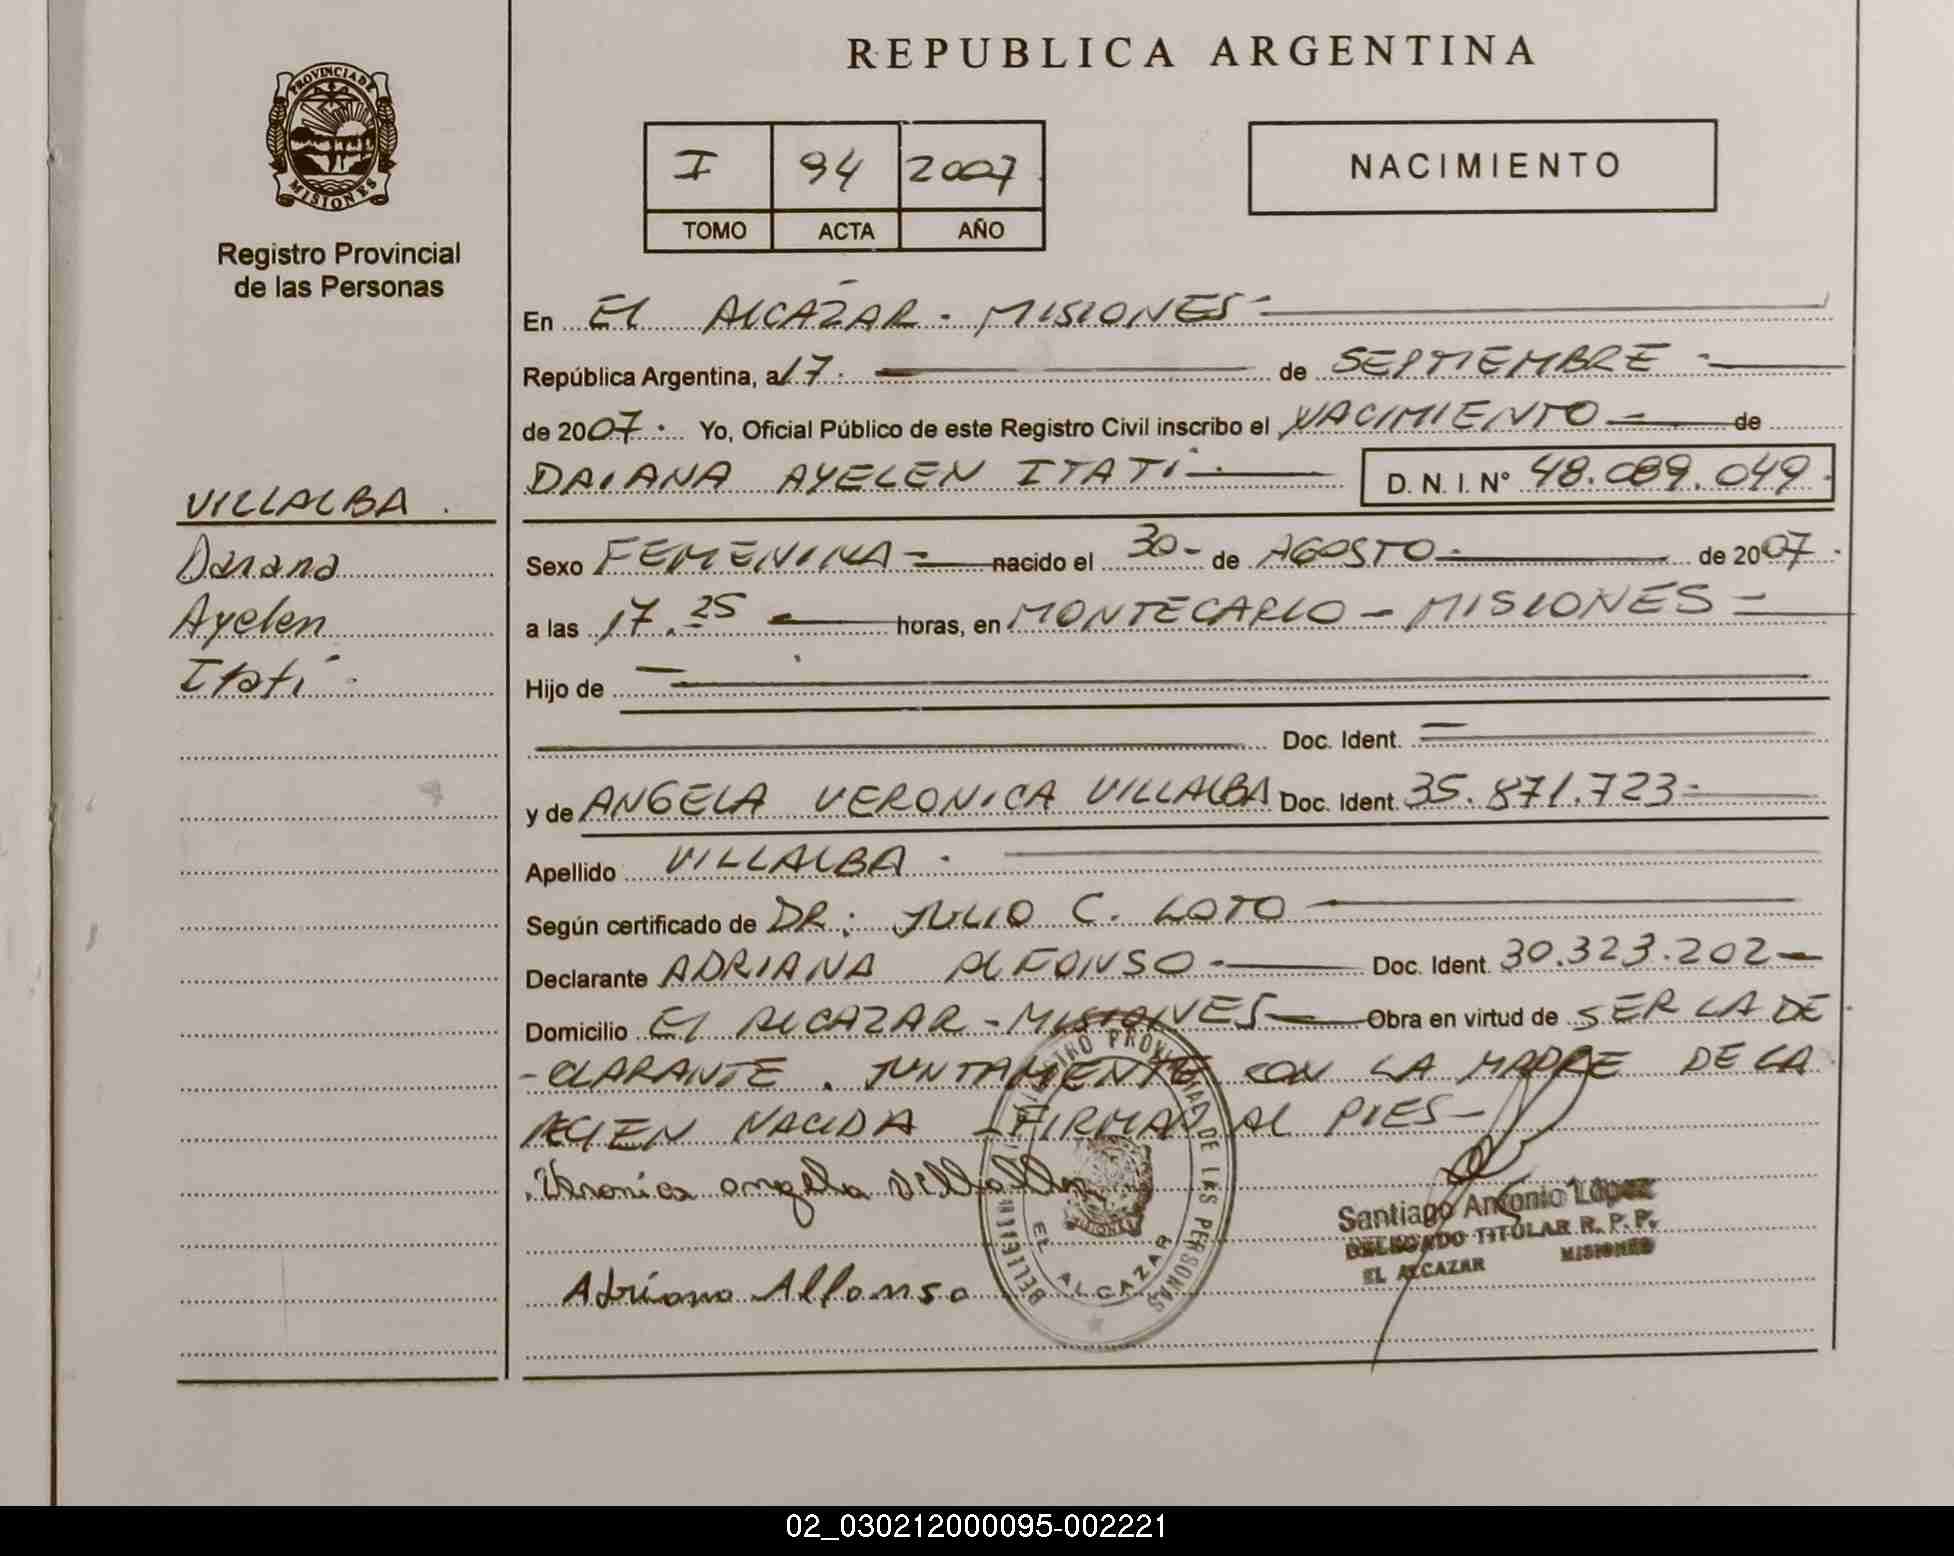 REPUBLICA ARGENTINA
PROVINCIA DE MISIONES
Registro Provincial
de las Personas
I 94 2007
TOMO ACTA AÑO
NACIMIENTO
En El ALCAZAR - MISIONES
República Argentina, a 17 de SEPTIEMBRE
de 2007. Yo, Oficial Público de este Registro Civil inscribo el NACIMIENTO de
DAIANA AYELEN ITATÍ D. N. I. Nº 48.089.049
VILLALBA
Daiana
Ayelen
Itatí
Sexo FEMENINA nacido el 30 de AGOSTO de 2007.
a las 17.25 horas, en MONTECARLO - MISIONES
Hijo de
Doc. Ident.
y de ANGELA VERONICA VILLALBA Doc. Ident. 35.871.723
Apellido VILLALBA
Según certificado de DR: JULIO C. LOTO
Declarante ADRIANA ALFONSO Doc. Ident. 30.323.202
Domicilio El ALCAZAR - MISIONES Obra en virtud de SER LA DE
-CLARANTE. JUNTAMENTE CON LA MADRE DE LA
RECIEN NACIDA - FIRMAN AL PIES-
Veronica angela Villalba
Adriana Alfonso
EL ALCAZAR
Santiago Antonio López
DELEGADO TITULAR R. P. P.
EL ALCAZAR MISIONES
02_030212000095-002221